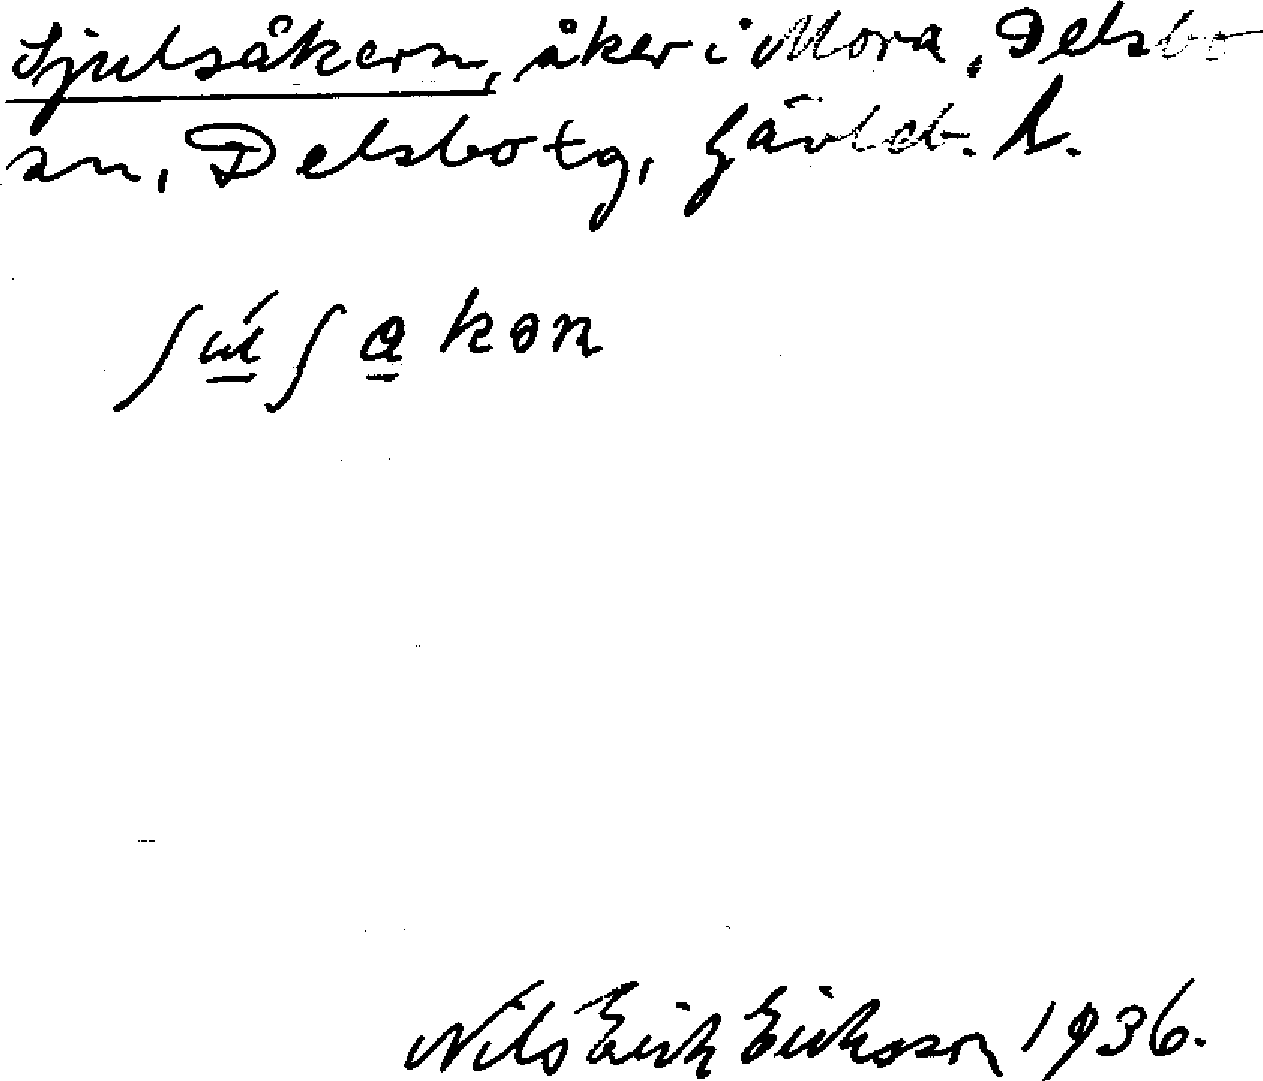 Sjulsåkern, åker i Mora, Delsbo
sn, Delsbo tg, Gävleb. l.
Nils Erik Eriksson 1936.